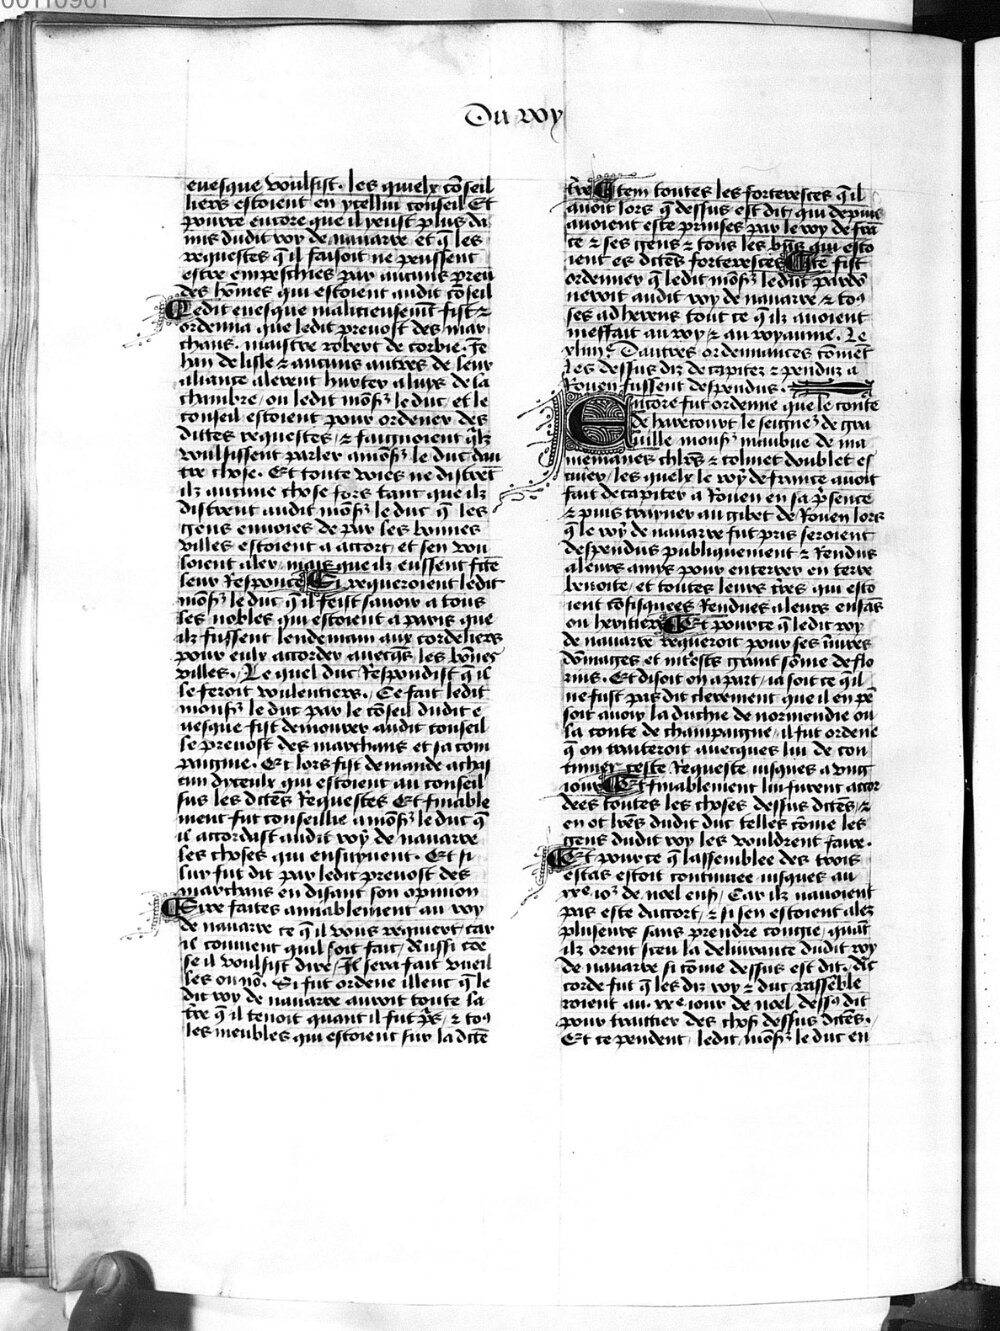 Du roy
euesque voulsist. les quielx cōseil
liers estoient en ycellui conseil Et
pource encore que il yeust plus da
mis dudit roy de nauarre et q̄ les
requestes q̄ il faisoit ne peussent
estre empeschies par aucuns preu
des hōmes qui estoient audit cōseil
Ledit euesque malicieusemēt fist ⁊
ordenna que ledit preuost des mar
chans. maistre robert de corbie. Je
han de lisle ⁊ aucuns autres de leur
aliance alerent hurter a luys de la
chambre / ou ledit mōsʳ le duc / et le
conseil estoient pour ordener des
dictes requestes / ⁊ faignoient q̄lz
voulsissent parler a mōsʳ le duc dau
tre chose. Et toute voies ne distrēt
ilz aucune chose fors tant que ilz
distrent audit mōsʳ le duc q̄ les
gens enuoies de par les bonnes
villes estoient a acort / et sen vou
loient aler / mais que ilz eussent fc̄te
leur Responce Si requeroient ledit
mōsʳ le duc q̄ il feist sauoir a tous
les nobles qui estoient a paris que
ilz fussent lendemain aux cordeliers
pour eulx accorder auecq̄s les bōnes
villes. Le quel duc Respondist q̄ il
le feroit voulentiers. Ce fait ledit
monsʳ le duc par le cōseil dudit e
uesque fist demourer audit conseil
le preuost des marchans et sa com
paignie. Et lors fist demande a chas
cun dyceulx qui estoient au conseil
sus les dictes Requestes Et finable
ment fut conseillie a mōsʳ le duc q̄
il accordast audit roy de nauarre
les choses qui ensuyuent. Et si
luy fut dit par ledit preuost des
marchans en disant son opinion
Sire faites amiablement au roy
de nauarre ce q̄ il vous requiert / car
il conuient quil soit fait / Aussi cōe
se il voulsist dire / Il sera fait vueil
les ou nō. Si fut ordene illeuc q̄ le
dit roy de nauarre auroit toute sa
tr̄re q̄ il tenoit quant il fut pris / ⁊ to⁹
les meubles qui estoient sur la dicte
tr̄re Item toutes les forteresces q̄ il
auoit lors q̄ dessus est dit / qui depuis
auoient este prinses par le roy de frā
ce ⁊ ses gens ⁊ tous les bn̄s qui esto
ient es dictes forteresces Itē fist
ordenner q̄ ledit mōsʳ le duc pardō
neroit audit roy de nauarre ⁊ to⁹
ses adherens tout ce q̄ ilz auoient
meffait au roy ⁊ au royaume. Le
Dautres ordennances cōmēt
les dessus diz decapitez ⁊ penduz a
Rouen fussent despendus.
Encore fut ordenne que le conte
de harecourt le seigneʳ de gra
uille monsʳ maubue de ma
memares chlr̄s ⁊ colinet doublet es
cuier / les quelx le roy de france auoit
fait decapiter a Rouen en sa p̄sence
⁊ puis trayner au gibet de Rouen lors
q̄ le roy de nauarre fut pris seroient
despendus publiquement ⁊ Rendus
a leurs amys pour enterrer en terre
benoite / et toutes leurs tr̄res qui esto
ient cōfisquees Rendues a leurs enfās
ou heritiers Et pource q̄ ledit roy
de nauarre Requeroit pour ses iniures
dōmages et int̄ests grant sōme de flo
rins. Et disoit on a part / ia soit ce q̄ il
ne fust pas dit clerement que il en pē
soit auoir la duchie de normendie ou
la conte de champaigne / il fut ordene
q̄ on traiteroit auecques lui de con
tinuer ceste Requeste iusques a vng
iour Et finablement lui furent accor
dees toutes les choses dessus dictes / ⁊
en ot lr̄es dudit duc telles cōme les
gens dudit roy les vouldrent faire.
Et pource q̄ lassemblee des trois
estas estoit continuee iusques au
xxᵉ ioʳ de noel ensʳ / Car ilz nauoient
pas este dacort / ⁊ si sen estoient alez
plusieurs sans prendre congie / quāt
ilz orent sceu la deliurance dudit roy
de nauarre si cōme dessus est dit. Ac
corde fut q̄ les diz roy ⁊ duc rassēble
roient au. xxᵉ iour de noel dess⁹ dit
pour traittier des choses dessus dictes.
Et ce pendent / ledit mōsʳ le duc en